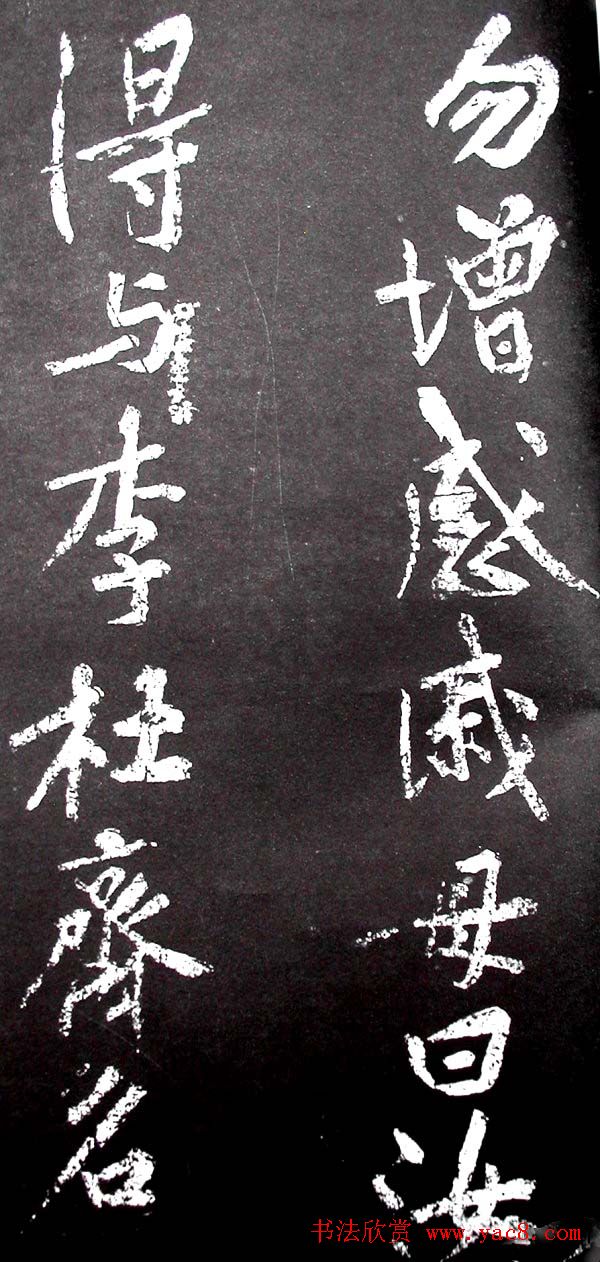 勿增感戚母曰汝
得与李杜齊名
书法欣赏 www.yac8.com